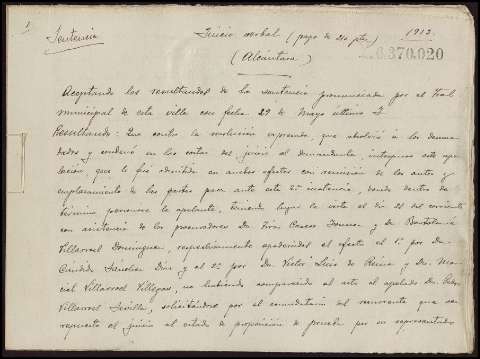 1
Sentencia
Juicio verbal (pago de 210 ptas) 1912.
(Alcántara)
6.370.020
Aceptando los resultandos de la sentencia pronunciada por el Tral
municipal de esta villa con fecha 29 de Mayo último y
Resultando: Que contra la resolución expresada, que absolvió á los deman
dados y condenó en las costas del juicio al demandante, interpuso este ape
lación, que le fué admitida en ambos efectos con remisión de los autos y
emplazamiento de las partes para ante esta 2ª instancia, donde dentro de
término personose la apelante, teniendo lugar la vista el día 22 del corriente
con asistencia de los procuradores Dn. Casco y Dn. Bartolomé
Villarroel Dominguez, respectivamente apoderados al efecto el 1º por Dn.
Candido Sánchez Díaz y el 2º por Dn. Victor Luis de Reina y Dn. Mar
cial Villarroel Villegas, no habiendo comparecido al acto el apelado Dn. Pedro
Villarroel Sevilla, solicitándose por el del recurrente que se
repusiera el juicio al estado de proposición de prueba por su representado